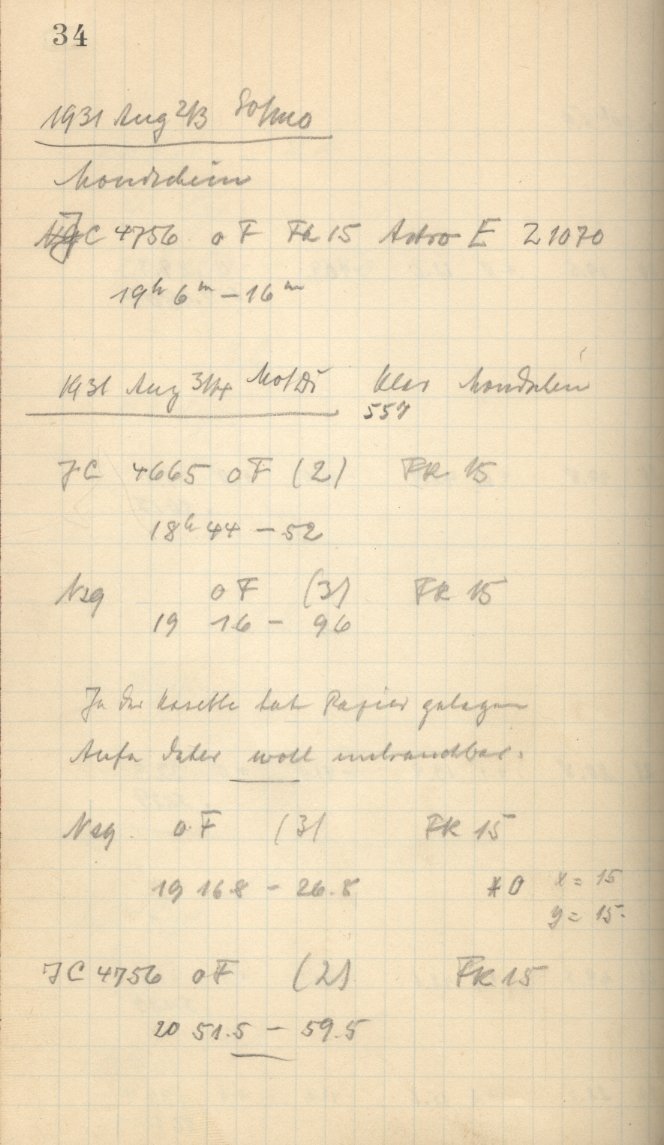 34
1931 Aug 2/3 So/Mo
Mondschein
JC 4756 oF FK 15 Astro E Z 1070
19h 6m – 16m
1931 Aug 3/4 Mo/Di Klar Mondschein
557
JC 4665 oF (2) FK 15
18h 44 – 52
Nsq oF (3) FK 15
19 16 – 96
In der Kasette hat Papier gelegen
Aufn daher wohl unbrauchbar.
Nsq oF (3) FK 15
19 16.8 – 26.8 *0 x = 15
y = 15
JC 4756 oF (2) FK 15
20 51.5 – 59.5